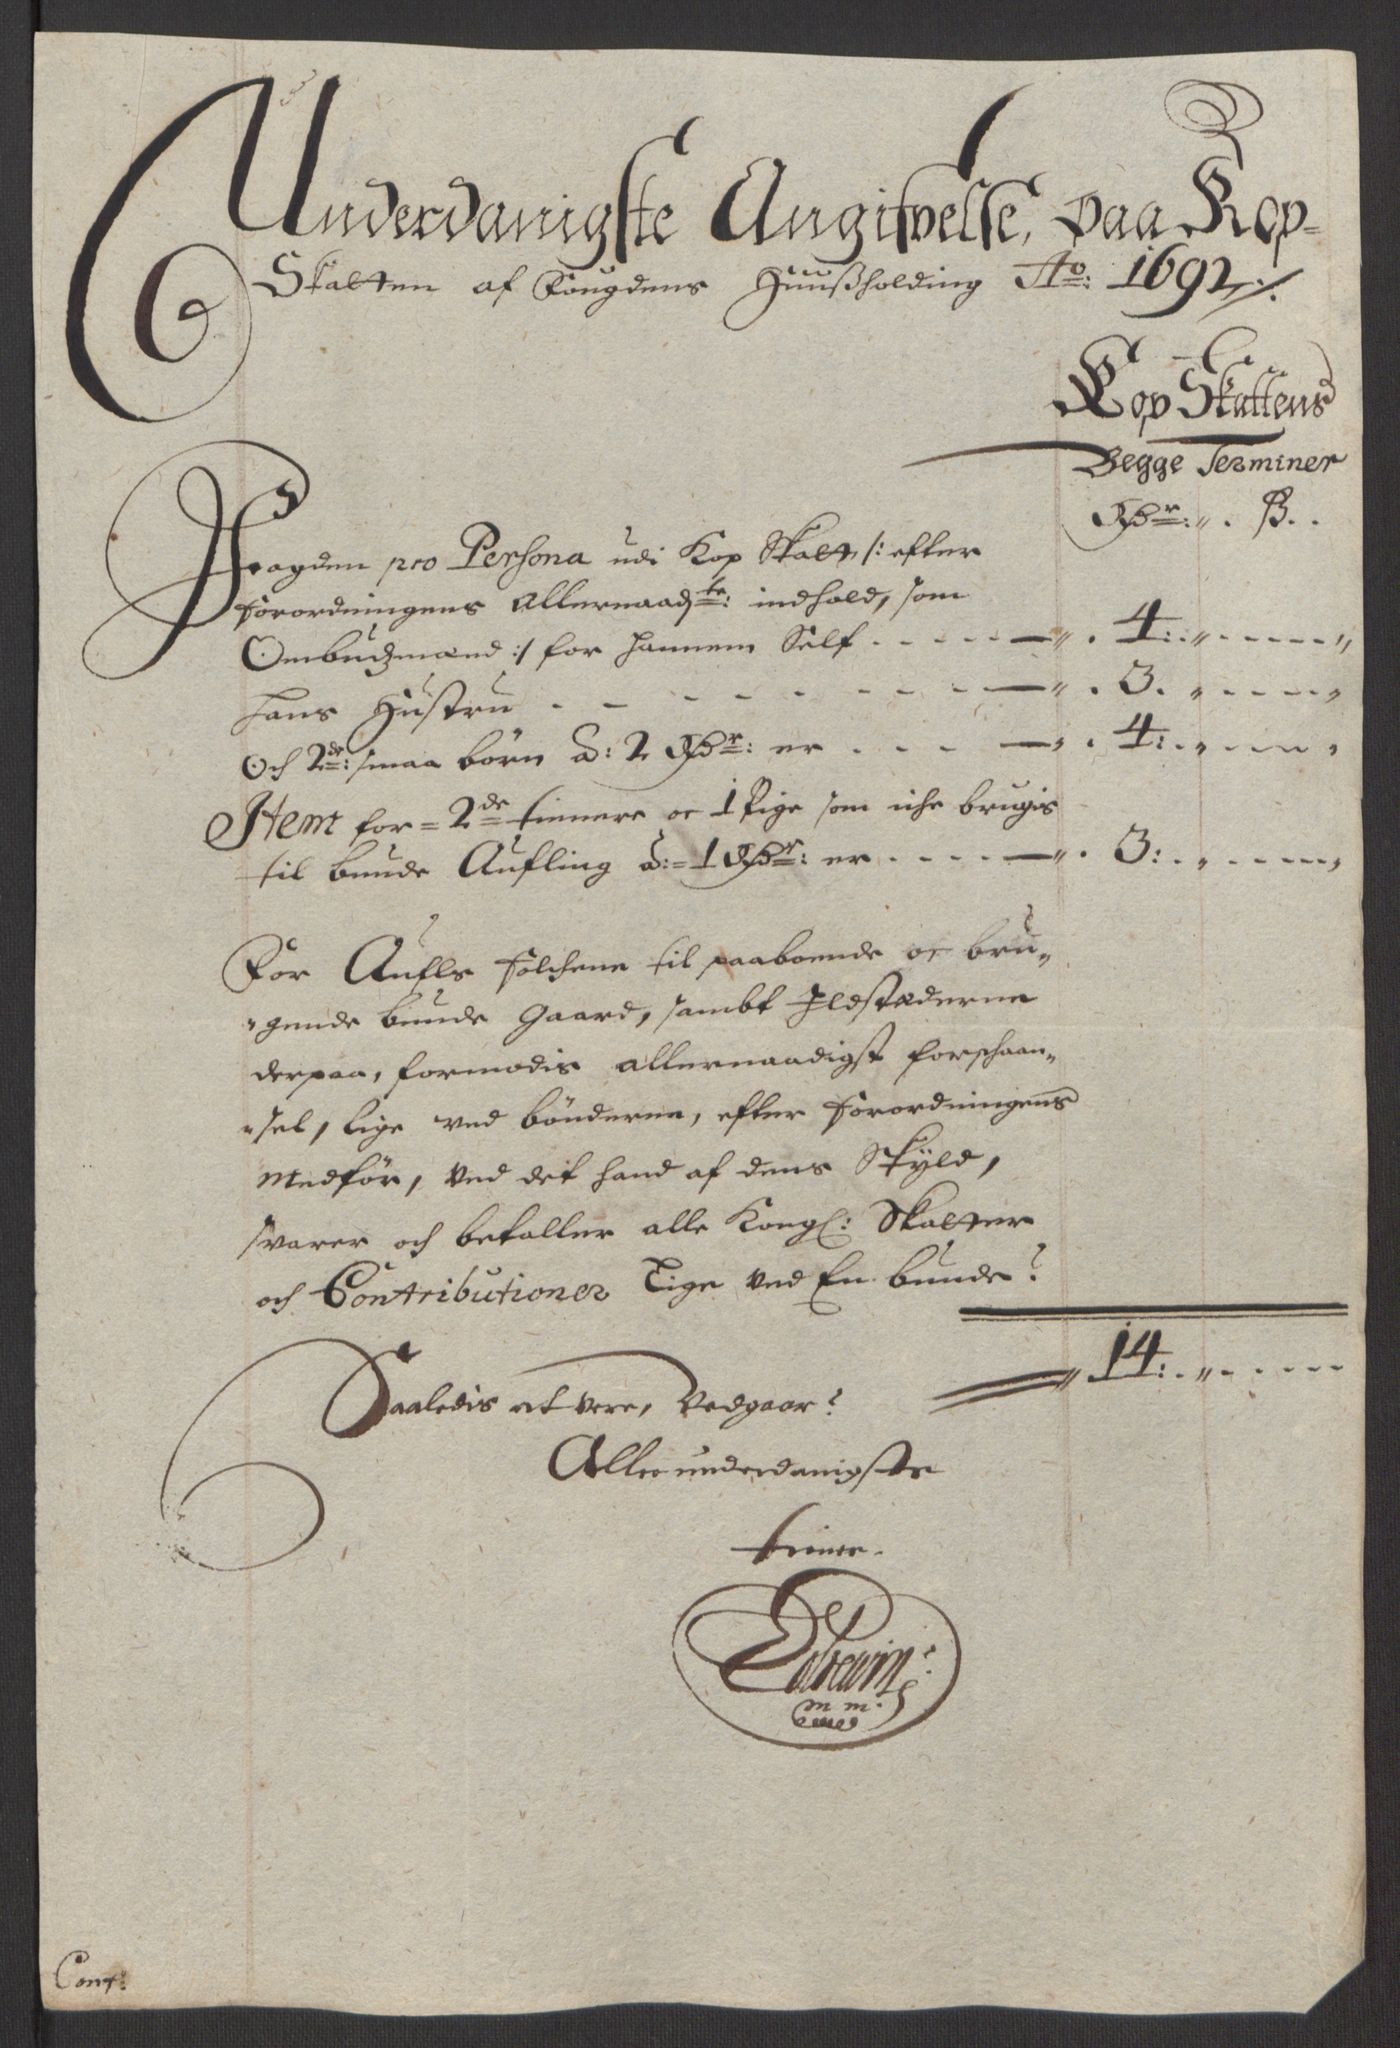 Underdanigste Angifvelse, paa Kop-
Skatten af Fougdens Huußholding Ao: 1692 ./.
Kop Skattens
Begge Terminer
Rdr: „ . ß . .
Fougden pro Persona udi Kop Skatt /: efter
forordningens allernaadste: indhold, som
Ombudzmand :/ for hannem Self . . . . . — „ . 4: . „ . - - - „
hans Hustru . - - - - - - — „ . 3. „ - - - „
Och 2de: smaa børn à: 2 Rdr: er . . . — „ . 4: . „ . - - „
Item for = 2de tienere oc 1 Pige som iche brugis
til bunde Aufling à: = 1 Rdr: er . . . . — „ . 3: . „ . - - - „
For Aufls folchene til paaboende oc bru-
„gende bunde Gaard, sambt Ildstæderne
derpaa, formodis allernaadigst forschaan-
„sel, lige ved bønderne, efter forordningens
Medfør, ved det hand af dens Skyld,
svarer och betaller alle Kongl: Skatter
och Contributioner Lige ved En bunde?
„ 14: . „ . - - - -
Saaledis at vere, Vedgaar?
Allerunderdanigste
tiener.
m m.
Cont: